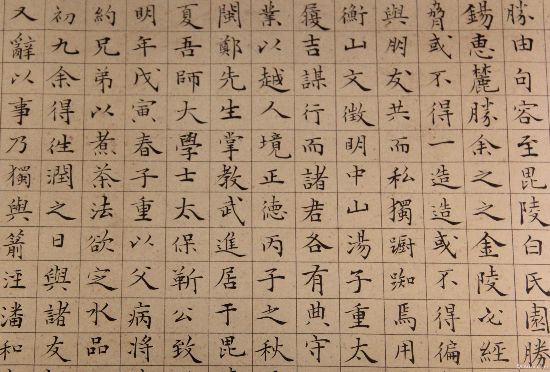 勝由句容至毘陵白氏園勝
錫惠麓勝余之之金陵也經
脅或不得一造造或不得徧
與朋友共而私獨蹰踟焉用
衡山文徵明中山湯子重太
履吉謀行而諸君各有典守
業以越人境正德丙子之秋
閩鄭先生掌教武進居于毘
夏吾師大學士太保靳公致
明年戊寅春子重以父病將
約兄弟以煮茶法欲定水品
初九余得往潤之日與諸友
又辭以事乃獨與箭涇潘和